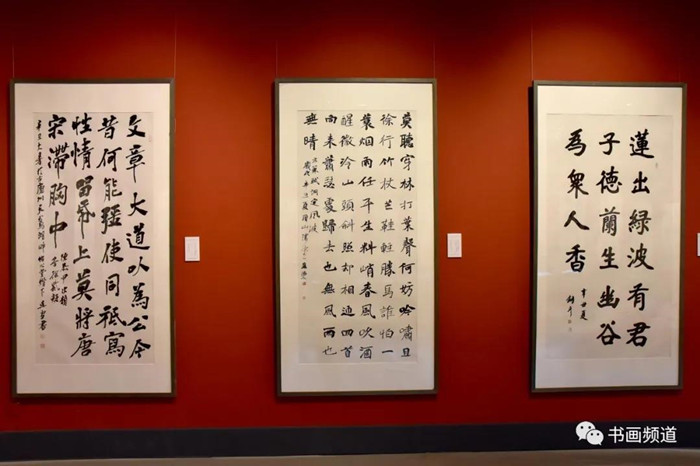 文章大道以為公今
昔何能彊使同祇寫
性情留帋上莫將唐
宋滯胸中
莫聽穿林打葉聲何妨吟嘯且
徐行竹杖芒鞵輕勝馬誰怕一
蓑烟雨任平生料峭春風吹酒
醒微冷山頭斜照却相迎回首
向来蕭瑟處歸去也無風雨也
無晴
蘇軾詞定風波
蓮出綠波有君
子德蘭生幽谷
為衆人香
辛丑夏
书画频道